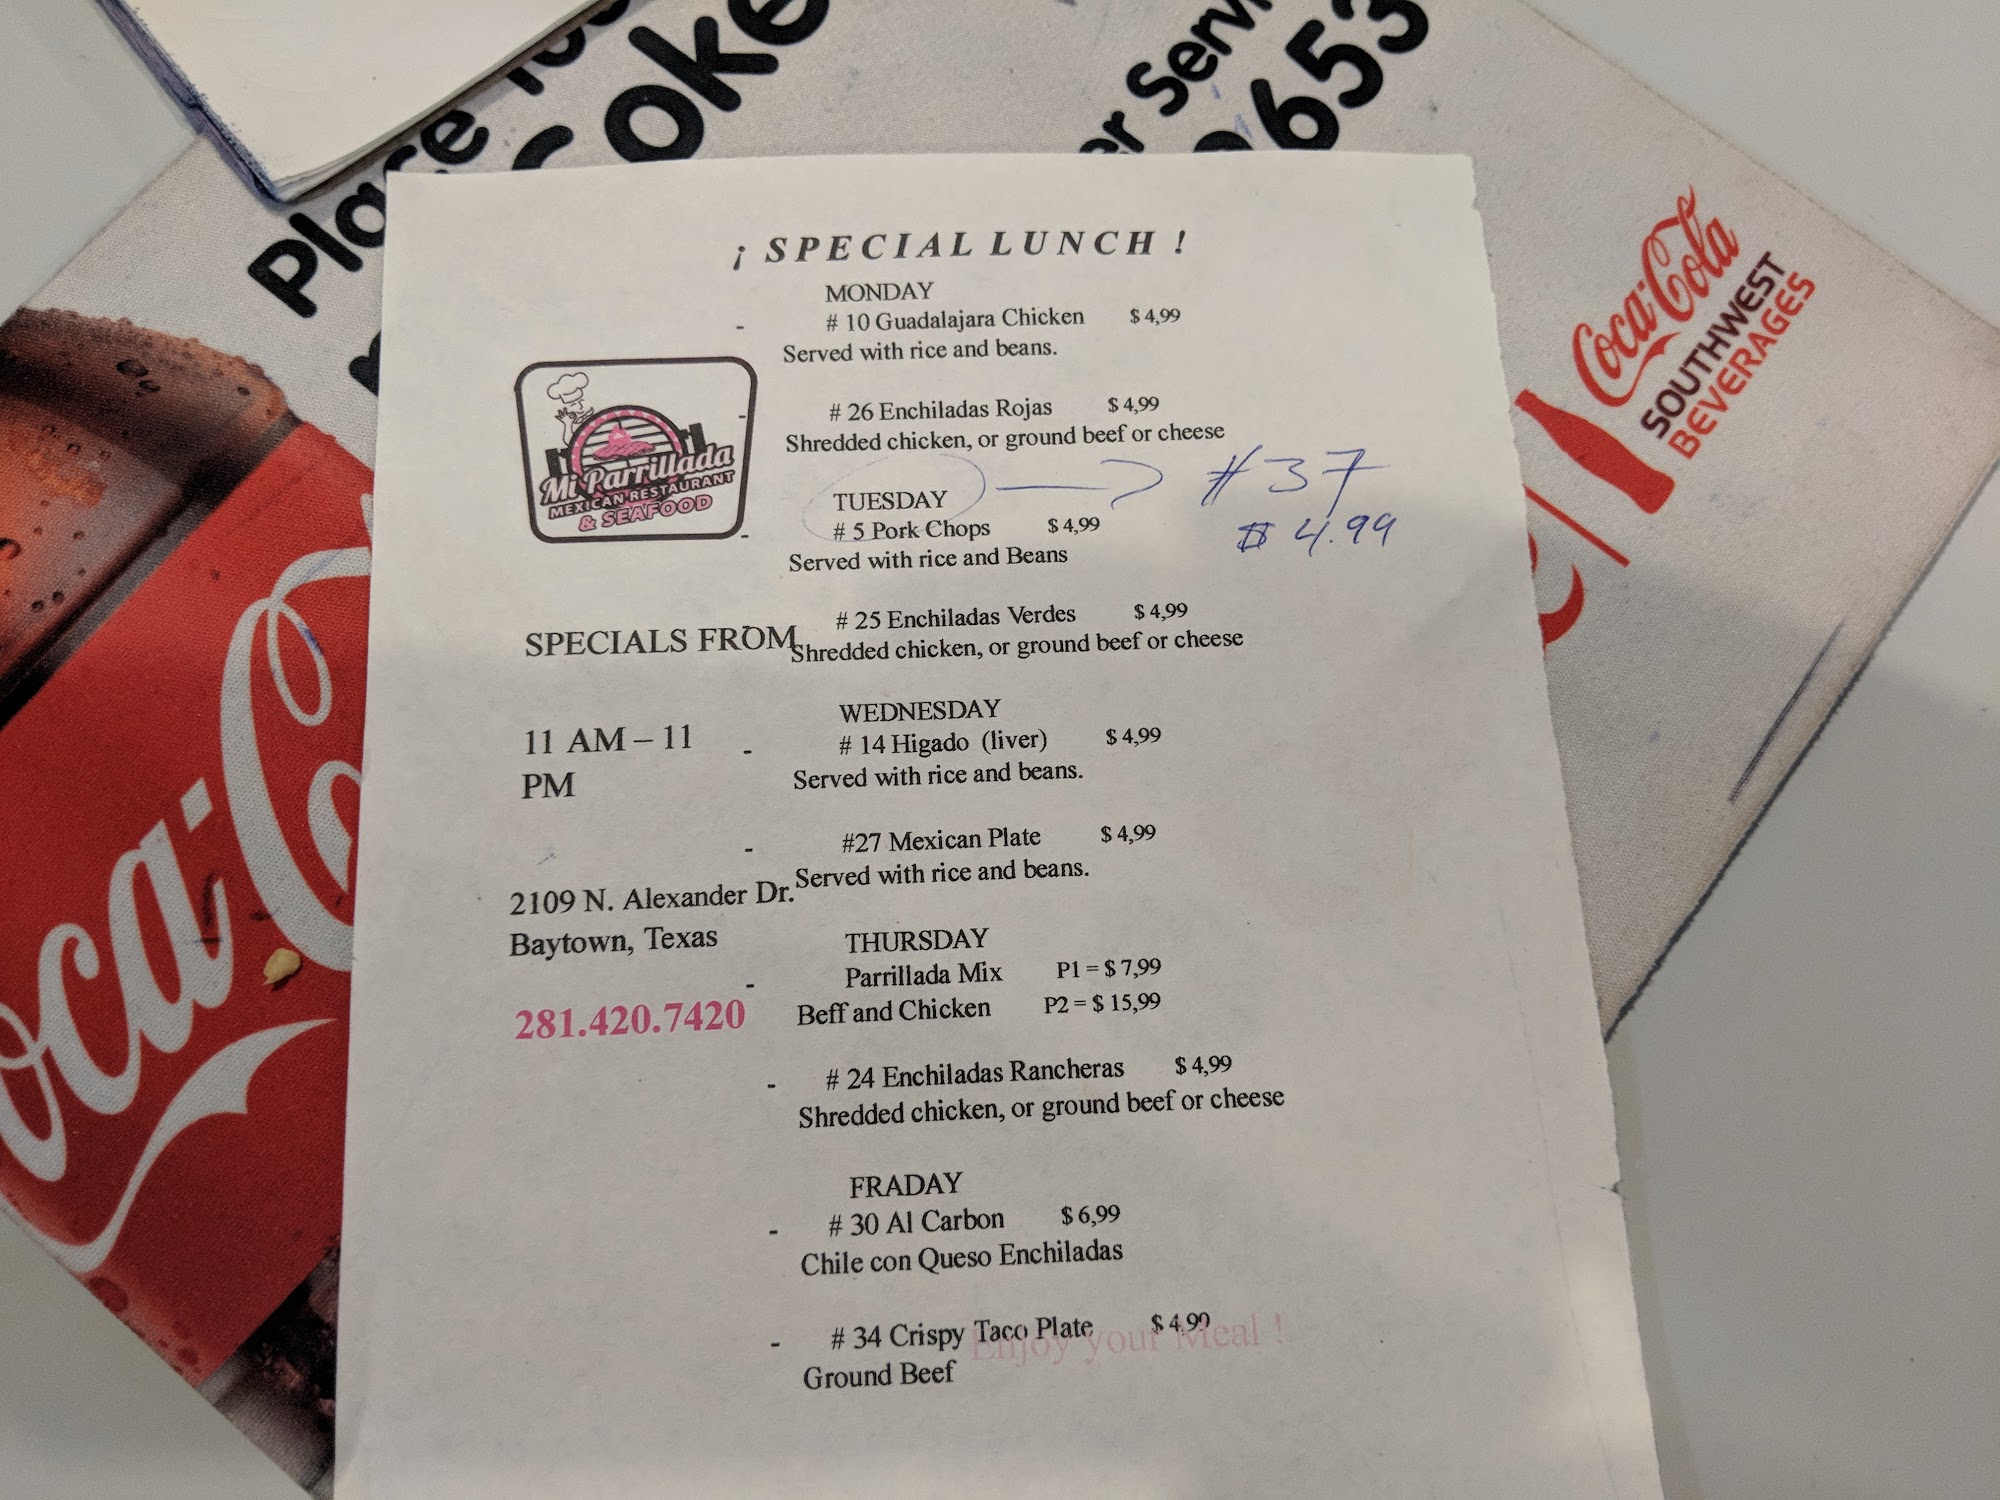 Coke
653
Coca-Cola
SOUTHWEST
BEVERAGES
¡ SPECIAL LUNCH !
MONDAY
- # 10 Guadalajara Chicken $ 4,99
Served with rice and beans.
- # 26 Enchiladas Rojas $ 4,99
Shredded chicken, or ground beef or cheese
TUESDAY → #37
- # 5 Pork Chops $ 4,99 $ 4.99
Served with rice and Beans
- # 25 Enchiladas Verdes $ 4,99
Shredded chicken, or ground beef or cheese
WEDNESDAY
- # 14 Higado (liver) $ 4,99
Served with rice and beans.
- #27 Mexican Plate $ 4,99
Served with rice and beans.
THURSDAY
- Parrillada Mix P1 = $ 7,99
Beff and Chicken P2 = $ 15,99
- # 24 Enchiladas Rancheras $ 4,99
Shredded chicken, or ground beef or cheese
FRADAY
- # 30 Al Carbon $ 6,99
Chile con Queso Enchiladas
- # 34 Crispy Taco Plate $ 4,99
Ground Beef
Enjoy your Meal !
Mi Parrillada
MEXICAN RESTAURANT
& SEAFOOD
SPECIALS FROM
11 AM – 11
PM
2109 N. Alexander Dr.
Baytown, Texas
281.420.7420